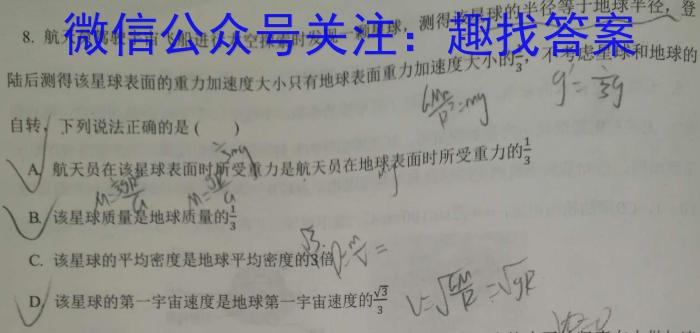 8. 航天员驾驶宇宙飞船进行太空探索时发现一颗星球，测得该星球的半径等于地球半径，登
微信公众号关注：趣找答案
陆后测得该星球表面的重力加速度大小只有地球表面重力加速度大小的1/3，不考虑星球和地球的
自转，下列说法正确的是 ( )
GMm/R²=mg
g'=1/3g
A. 航天员在该星球表面时所受重力是航天员在地球表面时所受重力的1/3
B. 该星球质量是地球质量的1/3
C. 该星球的平均密度是地球平均密度的3倍
D. 该星球的第一宇宙速度是地球第一宇宙速度的√3/3
V=√GM/R=√gR